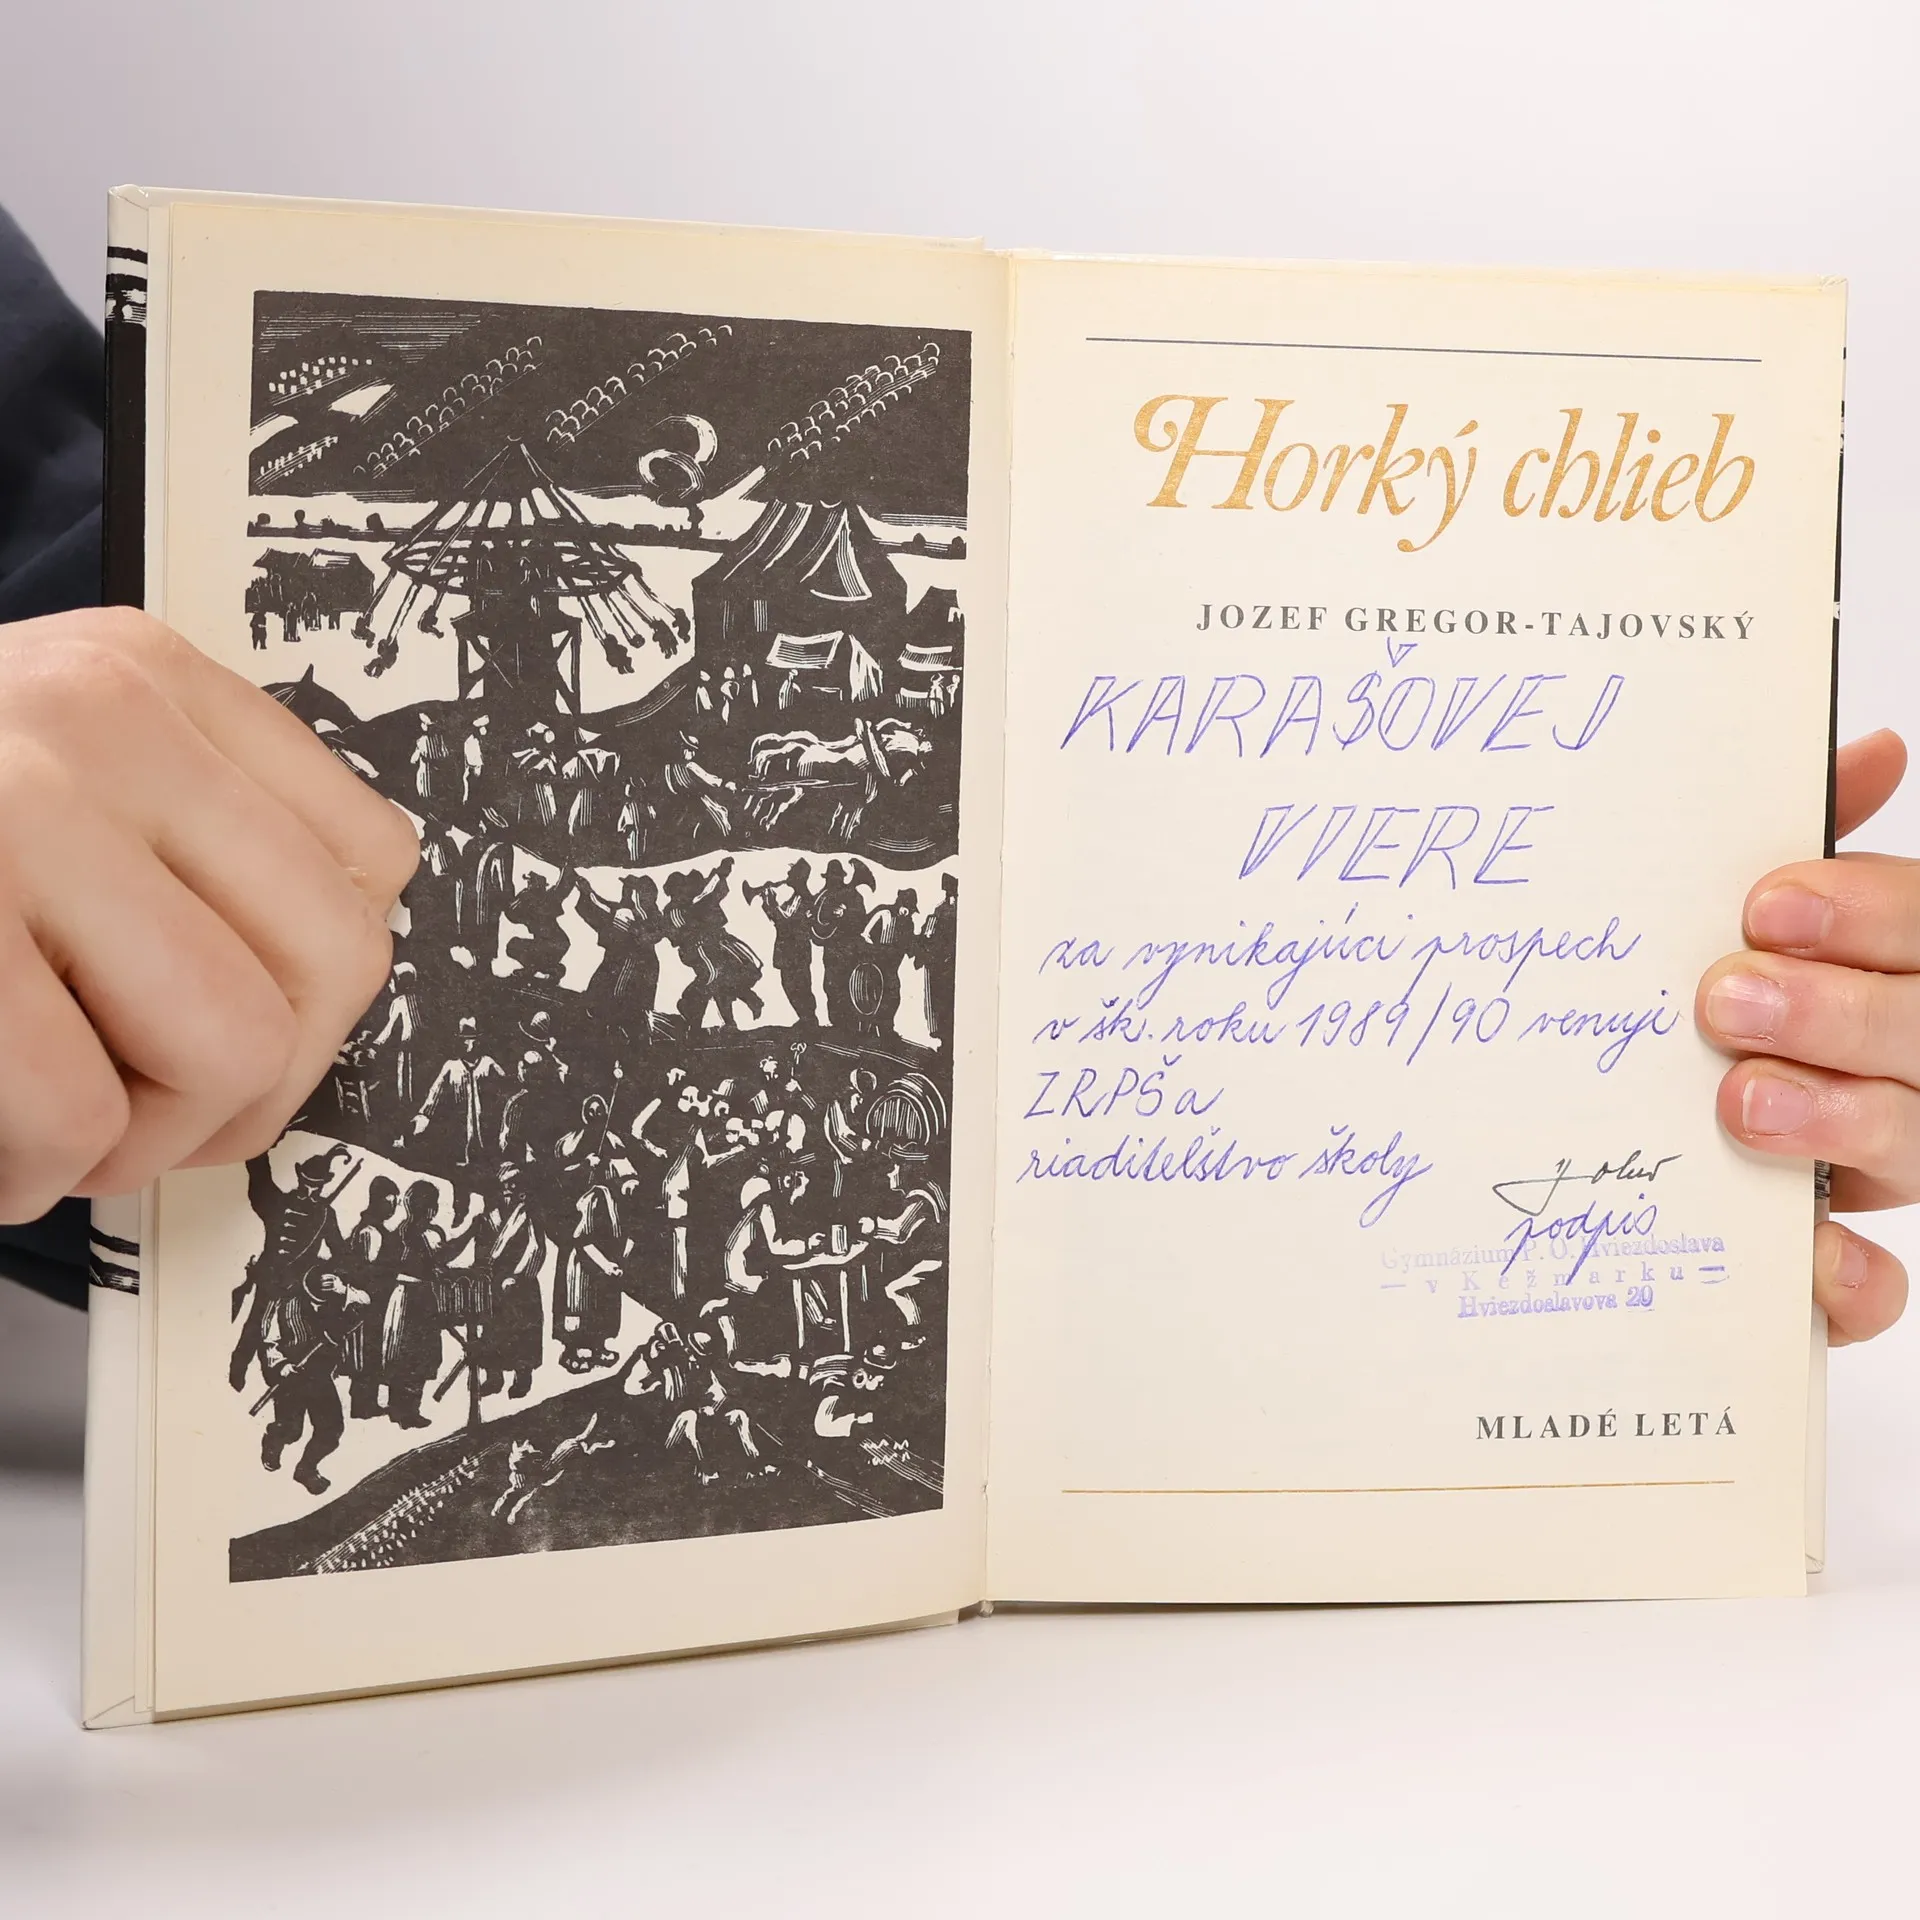 Horký chlieb
JOZEF GREGOR-TAJOVSKÝ
KARAŠOVEJ
VIERE
za vynikajúci prospech
v šk. roku 1989/90 venuje
ZRPŠ a
riaditeľstvo školy
podpis
Gymnázium P. O. Hviezdoslava
— v Kežmarku —
Hviezdoslavova 20
MLADÉ LETÁ